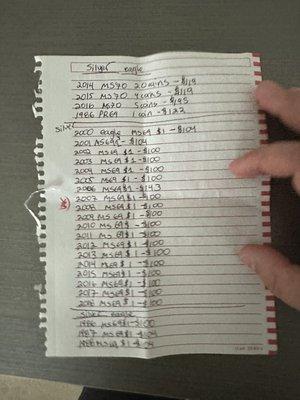 Silver eagle
2014 MS70 20 coins - $119
2015 MS70 4 coins - $119
2016 MS70 5 coins - $95
1986 PR69 1 coin - $122
Silver
2000 eagle MS69 $1 - $104
2001 MS69 - $104
2002 MS69 $1 - $100
2003 MS69 $1 - $100
2004 MS69 $1 - $100
2005 MS69 $1 - $100
2006 MS69 $1 - $143
2007 MS69 $1 - $100
2008 MS69 $1 - $100
2009 MS69 $1 - $100
2010 MS69 - $100
2011 MS69 $1 - $100
2012 MS69 $1 - $100
2013 MS69 $1 - $100
2014 MS69 $1 - $100
2015 MS69 $1 - $100
2016 MS69 $1 - $100
2017 MS69 $1 - $100
2018 MS69 $1 - $100
Silver eagle
1986 MS69 $1 - $100
1987 MS69 $1 - $
1988 MS69 $1 - $